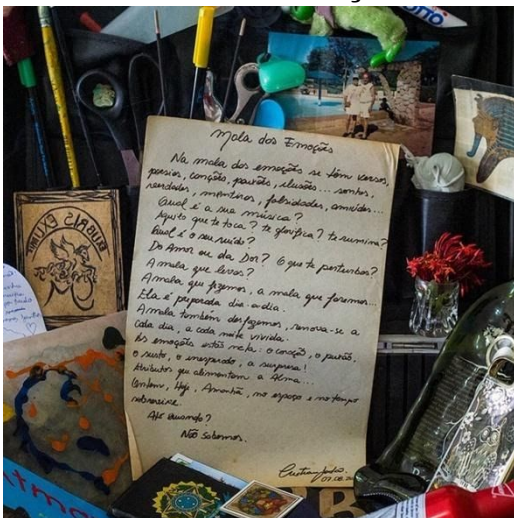 Mala dos Emoções
Na mala das emoções se têm versos,
poesias, canções, paixão, ilusões... sonhos,
verdades, mentiras, falsidades, amizades...
Qual é a sua música?
Aquilo que te toca? te glorifica? te rumina?
Qual é o seu ruído?
Do Amor ou da Dor? O que te perturbas?
A mala que levas?
A mala que fizemos, a mala que faremos...
Ela é preparada dia-a-dia.
A mala também desfazemos, renova-se a
cada dia, a cada noite vivida.
As emoções estão nela: o coração, o pulsão,
o susto, o inesperado, a surpresa!
Atributos que alimentam a Alma...
Ontem, Hoje, Amanhã, no espaço e no tempo
sobrevive.
Até quando?
Não sabemos.
07.08.20
EX LIBRIS
OTTO